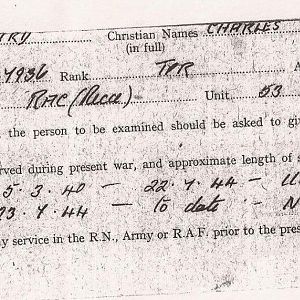 RY Christian Names CHARLES
(in full)
7936 Rank TPR A
RAC (Recce) Unit 53
the person to be examined should be asked to gi
rved during present war, and approximate length of s
5.3.40 – 22.7.44 – U
23.7.44 – to date – N
ny service in the R.N., Army or R.A.F. prior to the pres